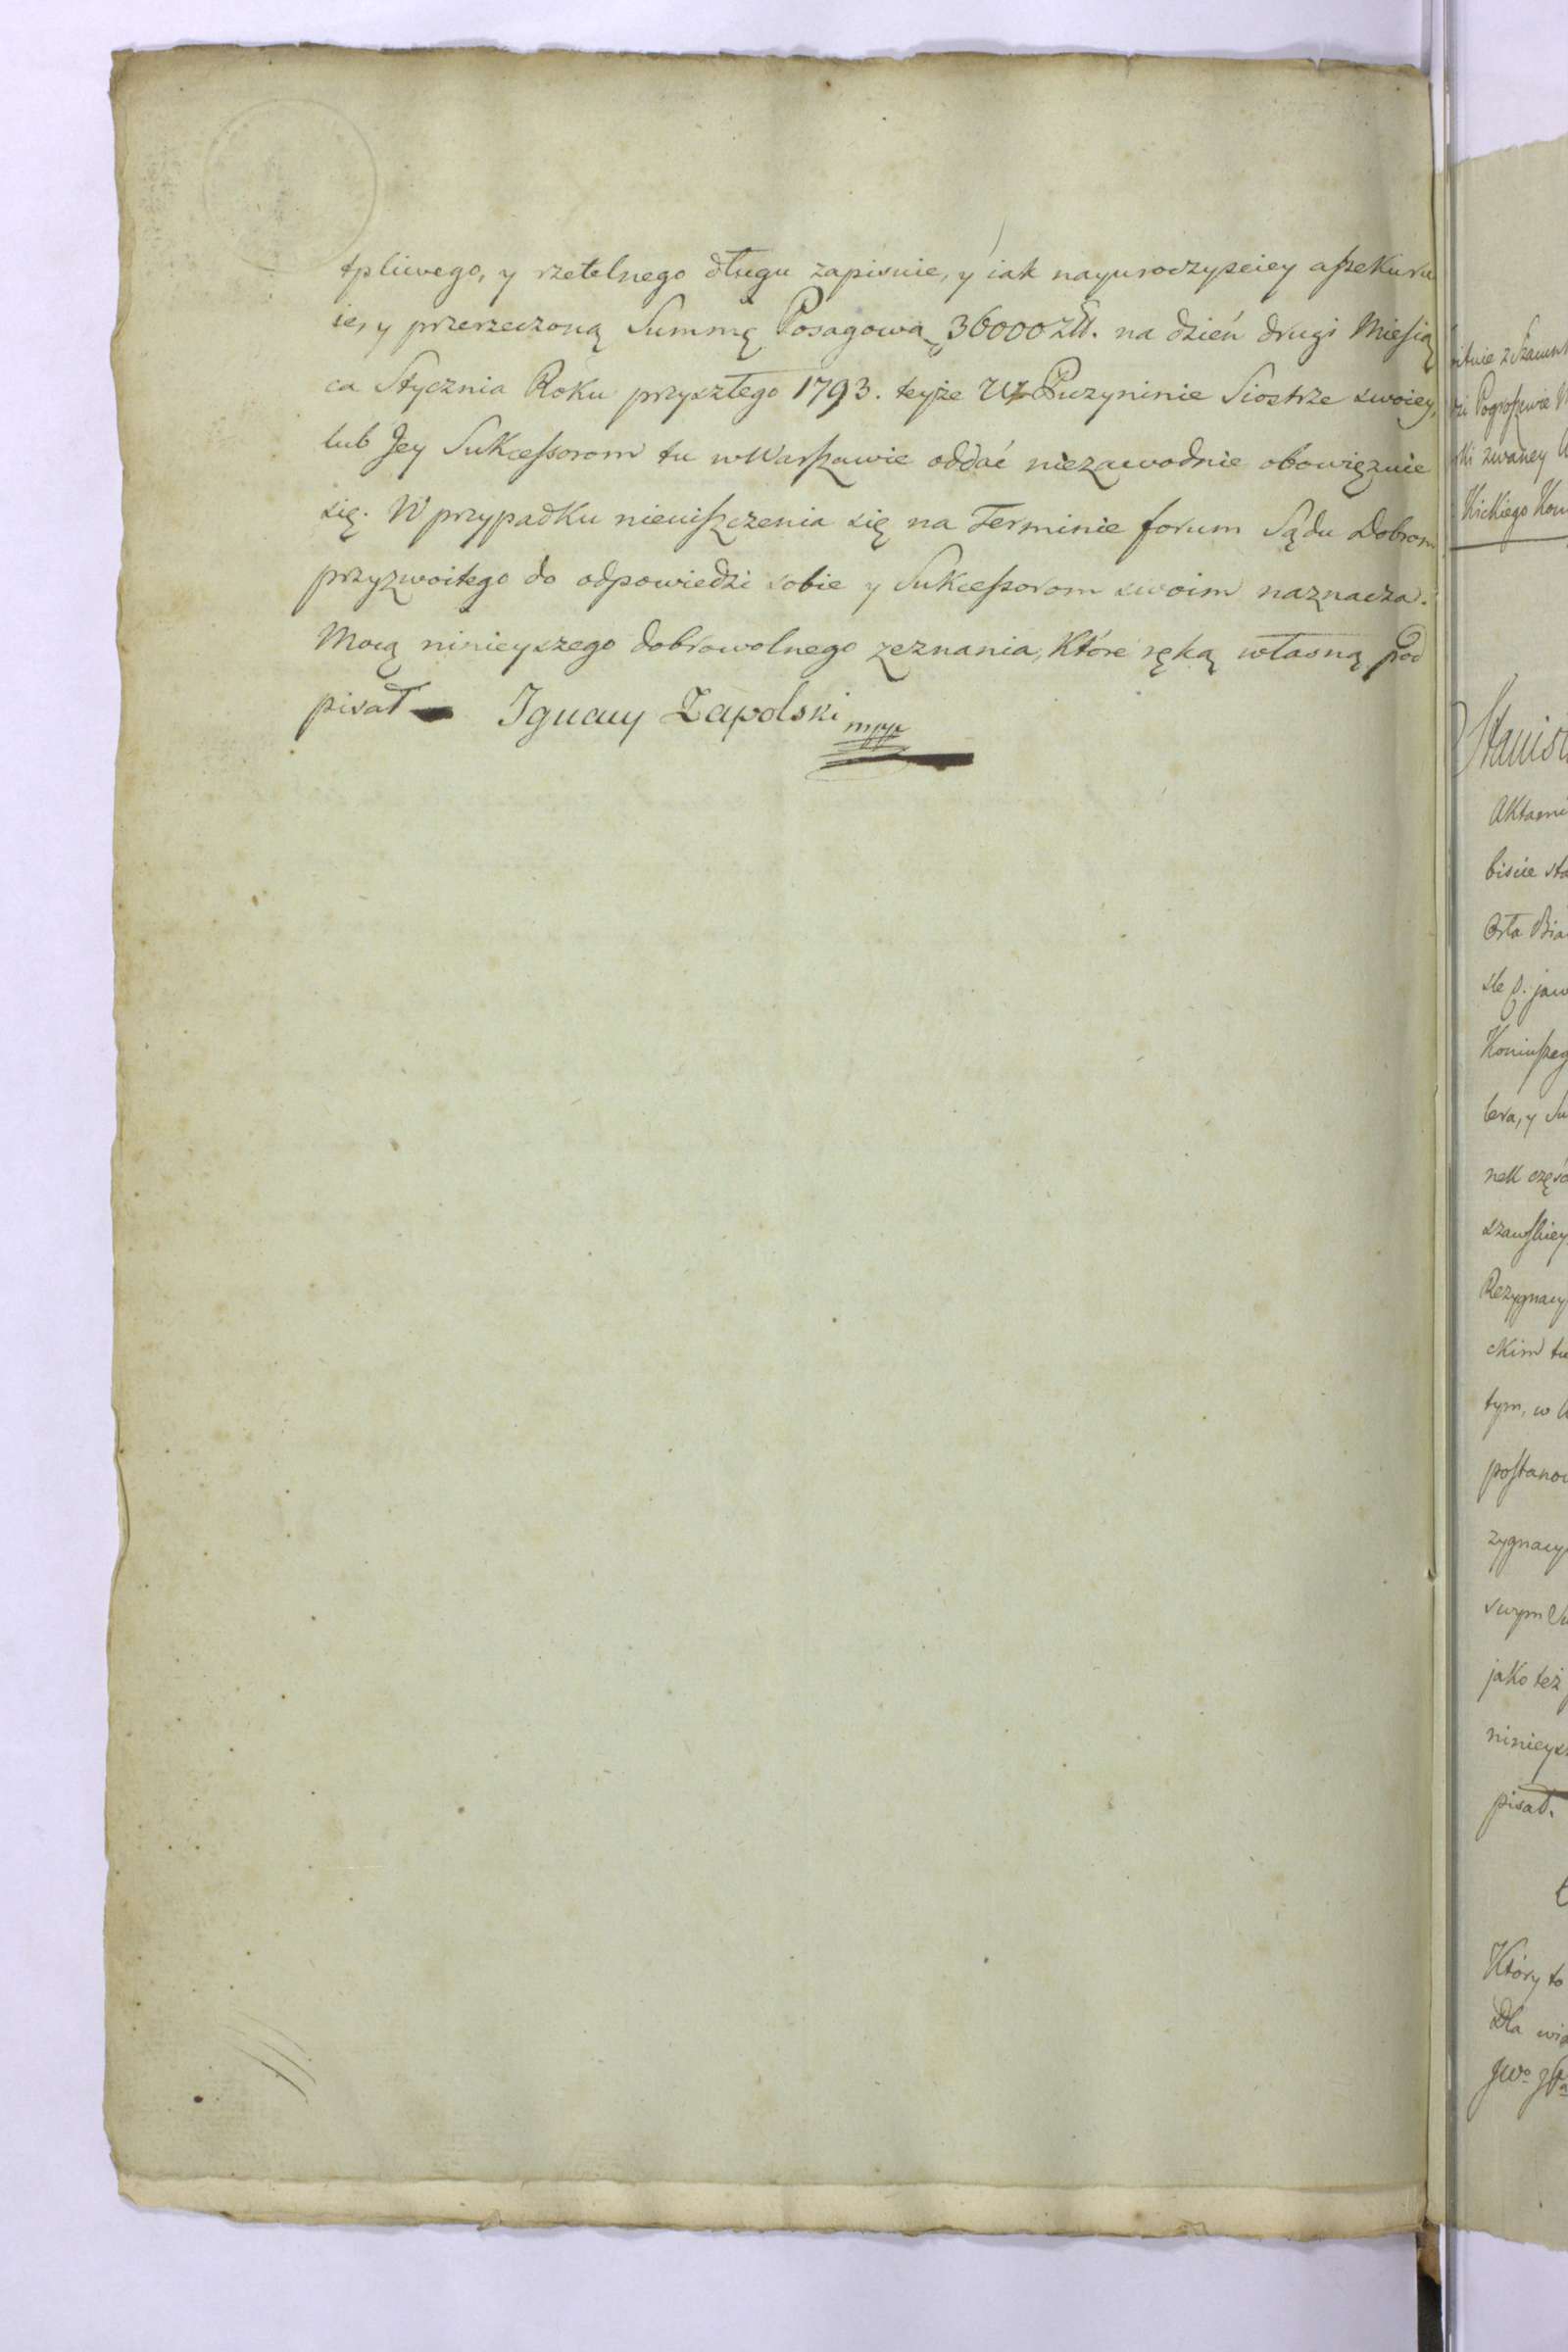 tpliwego, y rzetelnego długu zapisuie, y iak nayuroczyściey aſsekuru
ie, y przerzeczoną Summę Posagową 36000 Złł. na dzień drugi Mieſią
ca Stycznia Roku przyszłego 1793. teyże Puzyninie Siostrze swoiey,
lub Jey Sukceſsorom tu w Warſzawie oddać niezawodnie obowięzuie
się. W przypadku nieuiſzczenia się na Terminie forum Sądu Dobrom
przyzwoitego do odpowiedzi sobie y Sukceſsorom swoim naznacza.
Mocą ninieyszego dobrowolnego zeznania, które ręką własną pod
pisał Ignacy Zapolski mpp
Pogroſzewie
zwaney
Kickiego
Aktami
biście
Orła
Koniuſzeg
szawſkiey
Rezygnacy
ckim
tym, w
poſtanow
zygnacy
swym
jako też
ninieysz
pisał.
Który to
Dla